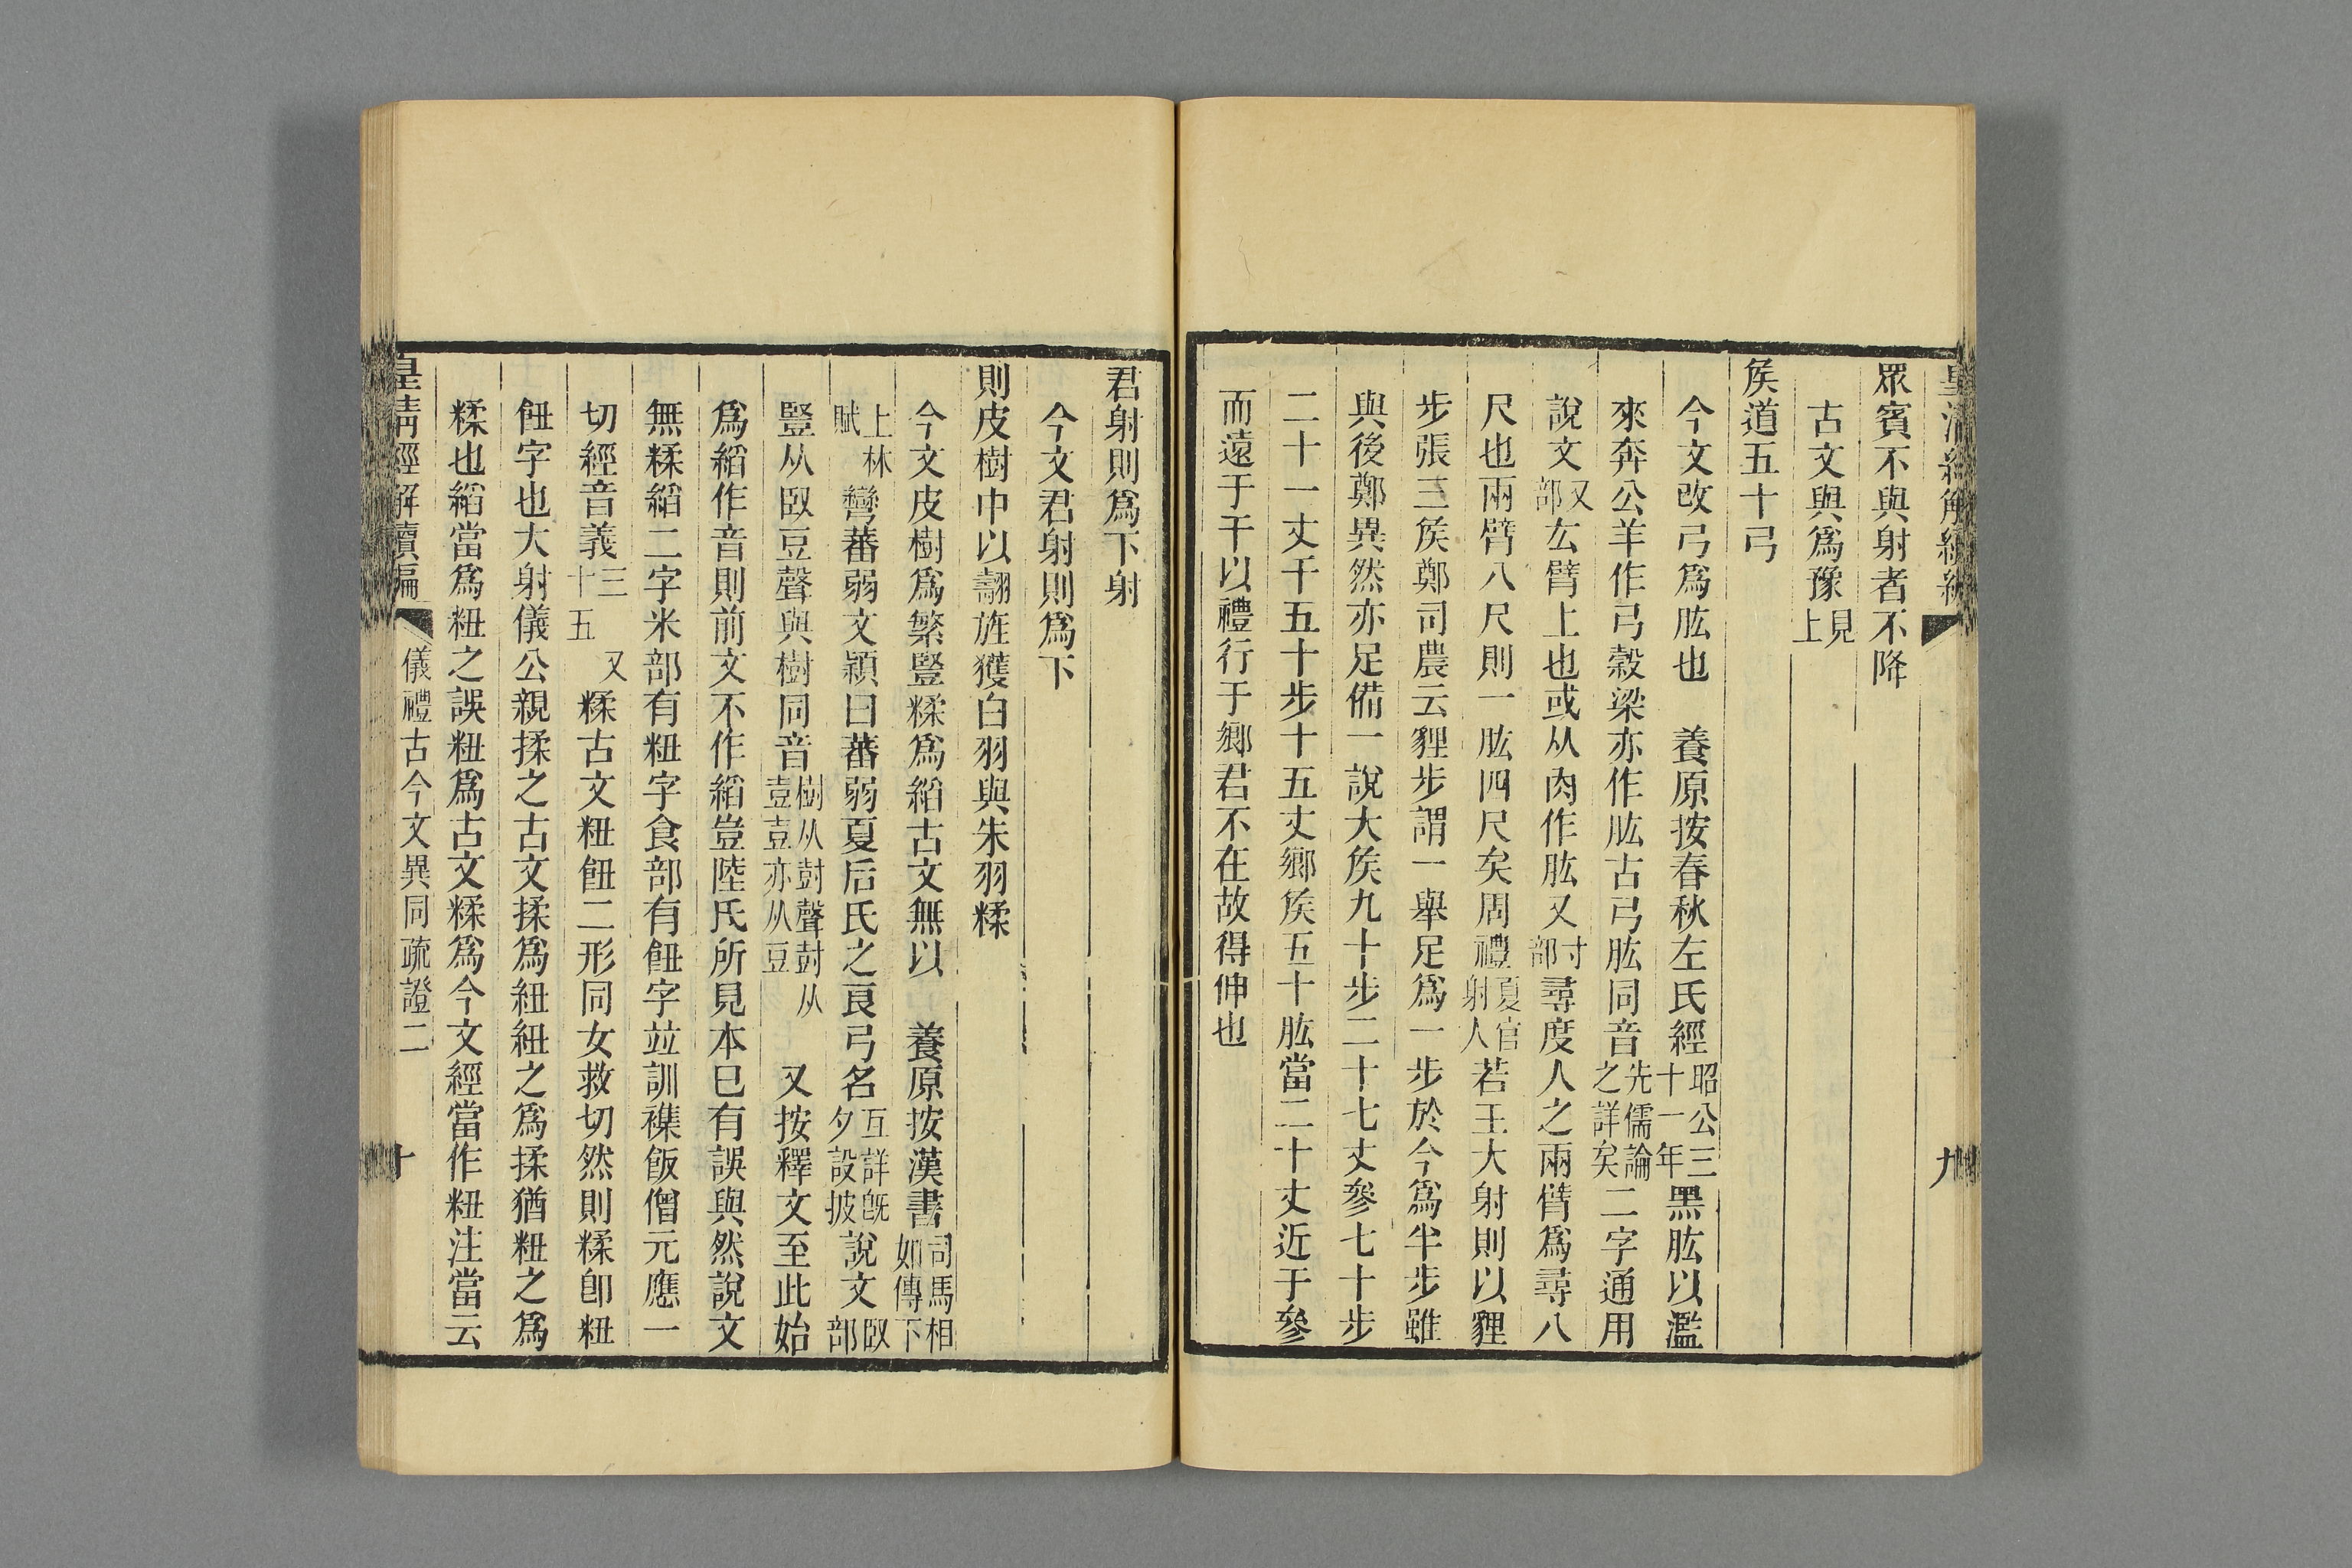 眾賓不與射者不降
古文與爲豫見上
矦道五十弓
今文改弓爲肱也　養原按春秋左氏經昭公三十一年黑肱以濫
來奔公羊作弓穀梁亦作肱古弓肱同音先儒論之詳矣二字通用
說文又部厷臂上也或从肉作肱又寸部尋度人之兩臂爲尋八
尺也兩臂八尺則一肱四尺矣周禮夏官射人若王大射則以貍
步張三矦鄭司農云貍步謂一舉足爲一步於今爲半步雖
與後鄭異然亦足備一說大矦九十步二十七丈參七十步
二十一丈干五十步十五丈鄉矦五十肱當二十丈近于參
而遠于干以禮行于鄉君不在故得伸也
九
君射則爲下射
今文君射則爲下
則皮樹中以翿旌獲白羽與朱羽糅
今文皮樹爲繁豎糅爲縚古文無以　養原按漢書司馬相如傳下
上林賦彎蕃弱文穎曰蕃弱夏后氏之良弓名互詳旣夕設披說文臤部
豎从臤豆聲與樹同音樹从尌聲尌从壴壴亦从豆　又按釋文至此始
爲縚作音則前文不作縚豈陸氏所見本已有誤與然說文
無糅縚二字米部有粈字食部有飪字竝訓襍飯僧元應一
切經音義三十五　又糅古文粈飪二形同女救切然則糅卽粈
飪字也大射儀公親揉之古文揉爲紐紐之爲揉猶粈之爲
糅也縚當爲粈之誤粈爲古文糅爲今文經當作粈注當云
皇淸經解續編　儀禮古今文異同疏證二　十